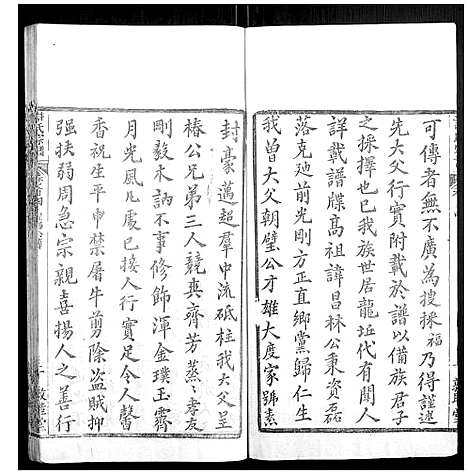 可傳者無不廣為搜採福乃得謹述
先大父行實附載於譜以備族君子
之採擇也巳我族世居龍坵代有聞人
詳載譜牒高祖諱昌林公秉資磊
落克廸前光剛方正直鄉黨歸仁生
我曾大父朝璧公才雄大度家號素
封豪邁超羣中流砥柱我大父呈
椿公兄弟三人競爽齊芳蒸蒸孝友
剛毅木訥不事修飾渾金璞玉霽
月光風凡處已接人行實足令人馨
香祝生平申禁屠牛剪除盜賊抑
强扶弱周急宗親喜揚人之善行